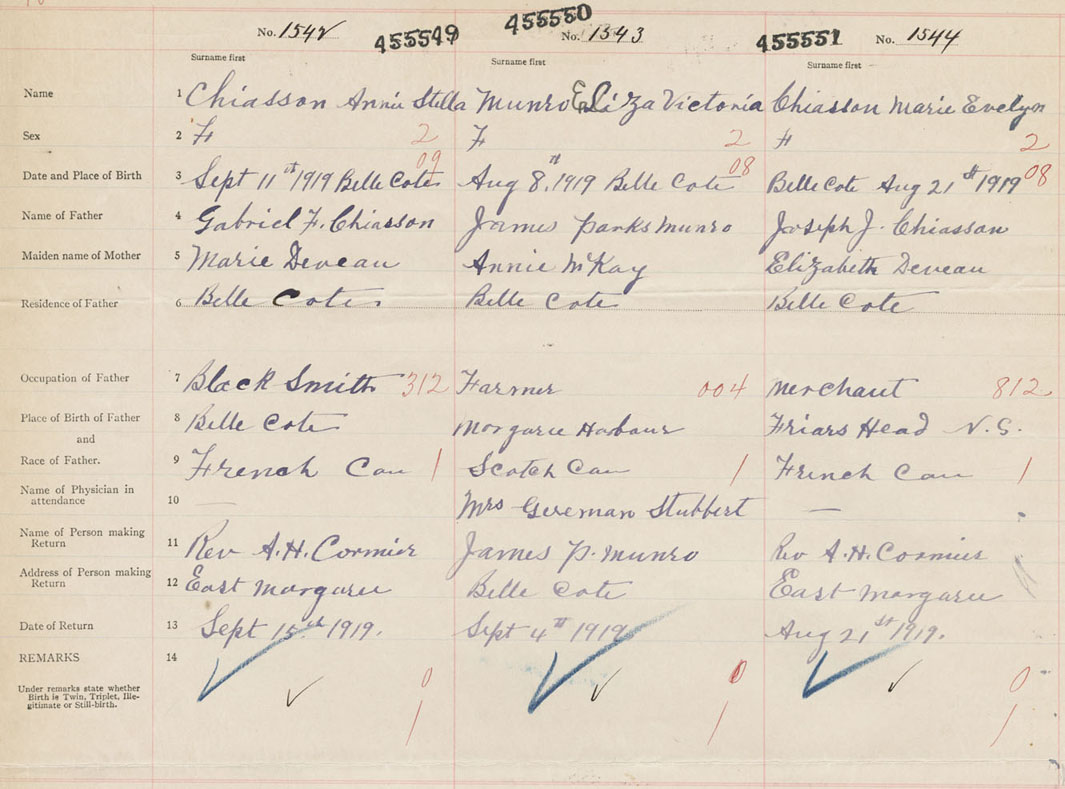 No. 1542 455549 455550 No. 1543 455551 No. 1544
Surname first Surname first Surname first
Name 1 Chiasson Annie Stella Munro Eliza Victoria Chiasson Marie Evelyn
Sex 2 F 2 F 2 F 2
09 08 08
Date and Place of Birth 3 Sept 11th 1919 Belle Cote Aug 8th, 1919 Belle Cote Belle Cote Aug 21st 1919
Name of Father 4 Gabriel F. Chiasson James Parks Munro Joseph J. Chiasson
Maiden name of Mother 5 Marie Deveau Annie McKay Elizabeth Deveau
Residence of Father 6 Belle Cote Belle Cote Belle Cote
Occupation of Father 7 Black Smith 312 Farmer 004 Merchant 812
Place of Birth of Father 8 Belle Cote Margaree Harbour Friars Head N.S.
and
Race of Father. 9 French Can 1 Scotch Can 1 French Can 1
Name of Physician in
attendance 10 — Mrs Stubbert —
Name of Person making
Return 11 Rev A.H. Cormier James P. Munro Rev A.H. Cormier
Address of Person making
Return 12 East Margaree Belle Cote East Margaree
Date of Return 13 Sept 15th 1919. Sept 4th 1919 Aug 21st 1919.
REMARKS 14
Under remarks state whether
Birth is Twin, Triplet, Ille-
gitimate or Still-birth.
0 0 0
1 1 1